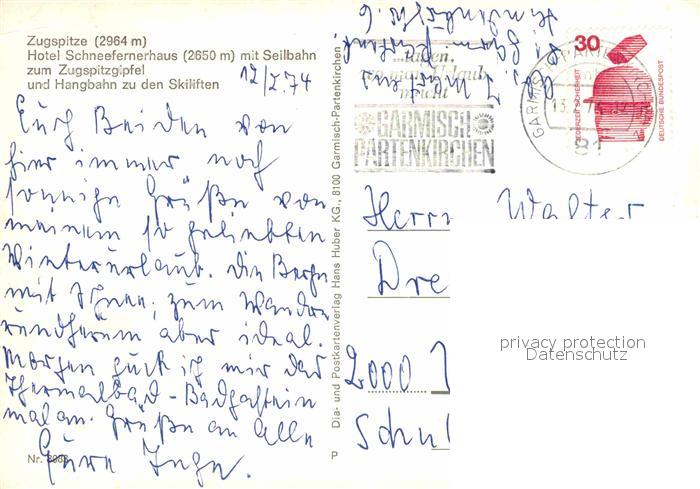 Zugspitze (2964 m)
Hotel Schneefernerhaus (2650 m) mit Seilbahn
zum Zugspitzgipfel
und Hangbahn zu den Skiliften
12/2.74
Euch Beiden von
hier immer noch
sonnige Grüße von
meinem so geliebten
Winterurlaub. Die Berge
mit Schnee, zum Wandern
rundherum aber ideal.
Morgen guck ich mir das
Thermalbad-Badgastein
mal an. Grüße an Alle
Eure Inge.
Nr. 8868
Dia- und Postkartenverlag Hans Huber KG., 8100 Garmisch-Partenkirchen
P
Urlaub
GARMISCH
PARTENKIRCHEN
GARMISCH-PARTENKIRCHEN
81
30
JEDERZEIT SICHERHEIT
DEUTSCHE BUNDESPOST
Herrn Walter
Dre
2000
Schul
privacy protection
Datenschutz